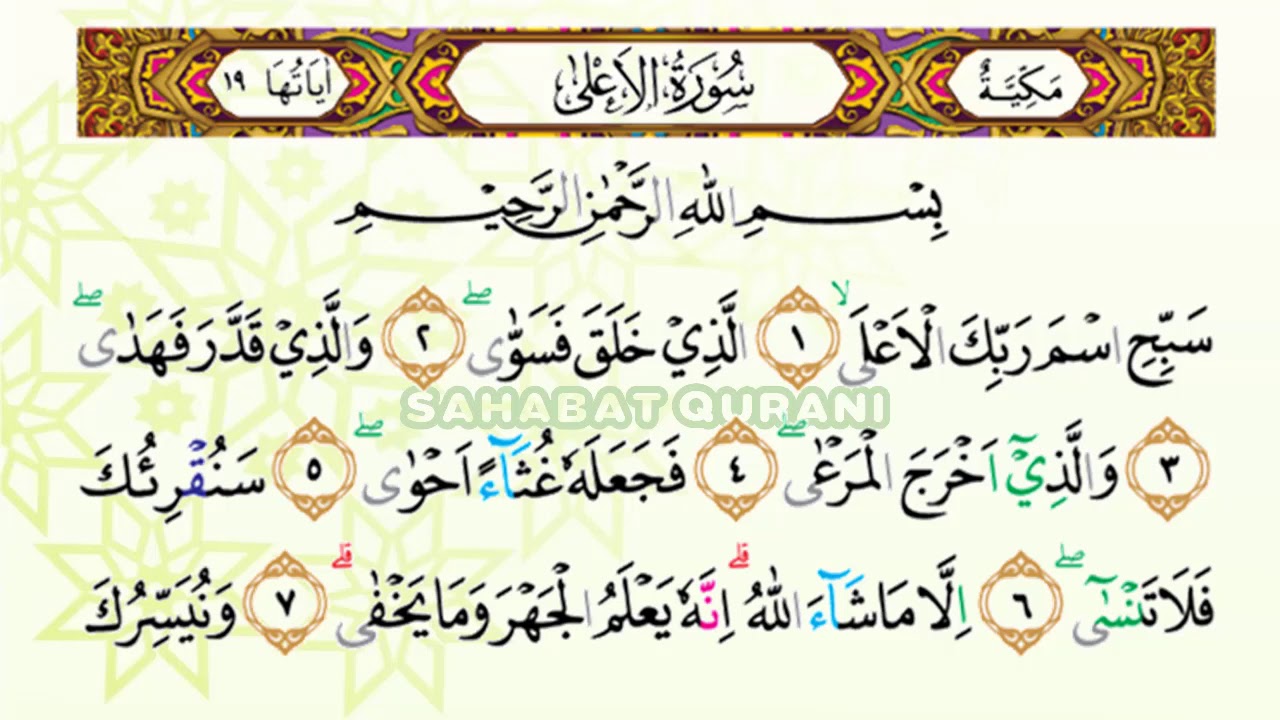 مَكِّيَّةٌ سُوْرَةُ الْاَعْلٰى اٰيَاتُهَا ١٩
بِسْمِ اللّٰهِ الرَّحْمٰنِ الرَّحِيْمِ
سَبِّحِ اسْمَ رَبِّكَ الْاَعْلَىۙ ١ الَّذِيْ خَلَقَ فَسَوّٰىۖ ٢ وَالَّذِيْ قَدَّرَ فَهَدٰىۖ
SAHABAT QURANI
٣ وَالَّذِيْٓ اَخْرَجَ الْمَرْعٰىۖ ٤ فَجَعَلَهٗ غُثَاۤءً اَحْوٰىۖ ٥ سَنُقْرِئُكَ
فَلَا تَنْسٰىٓۖ ٦ اِلَّا مَا شَاۤءَ اللّٰهُ ۗاِنَّهٗ يَعْلَمُ الْجَهْرَ وَمَا يَخْفٰىۗ ٧ وَنُيَسِّرُكَ